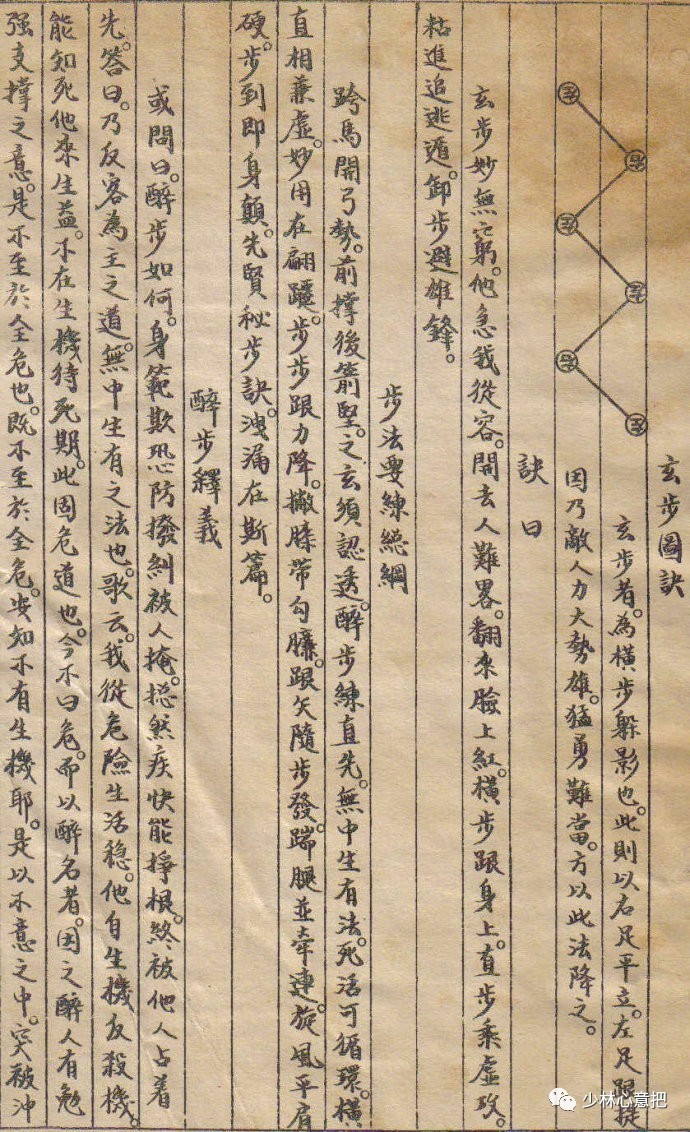 玄步圖訣
玄步者。為横步躲影也。此則以右足平立。左足踢提
因乃敵人力大勢雄。猛勇難當。方以此法降之。
訣曰
玄步妙無窮。他急我從容。開去人難畧。翻來臉上紅。横步跟身上。直步乘虛攻。
粘進追逃遁。卸步避雄鋒。
步法要練總綱
跨馬開弓勢。前撐後箭堅。之玄須認透。醉步練直先。無中生有法。死活可循環。横
直相兼虛。妙用在翩躚。步步跟力降。撇膝帶勾臁。跟矢隨步發。踹腿並牽連。旋風平肩
硬。步到即身顛。先賢秘步訣。洩漏在斯篇。
醉步釋義
或問曰。醉步如何。身範欺恐防撥糾被人掩。摠然疾快能掙根。終被他人占着
先。答曰。乃反客為主之道。無中生有之法也。歌云。我從危險生活穩。他自生機反殺機。
能知死他來生益。不在生機待死期。此固危道也。今不曰危。而以醉名者。因之醉人有勉
强支撐之意。是不至於全危也。既不至於全危。安知不有生機耶。是以不意之中。突被沖
少林心意把